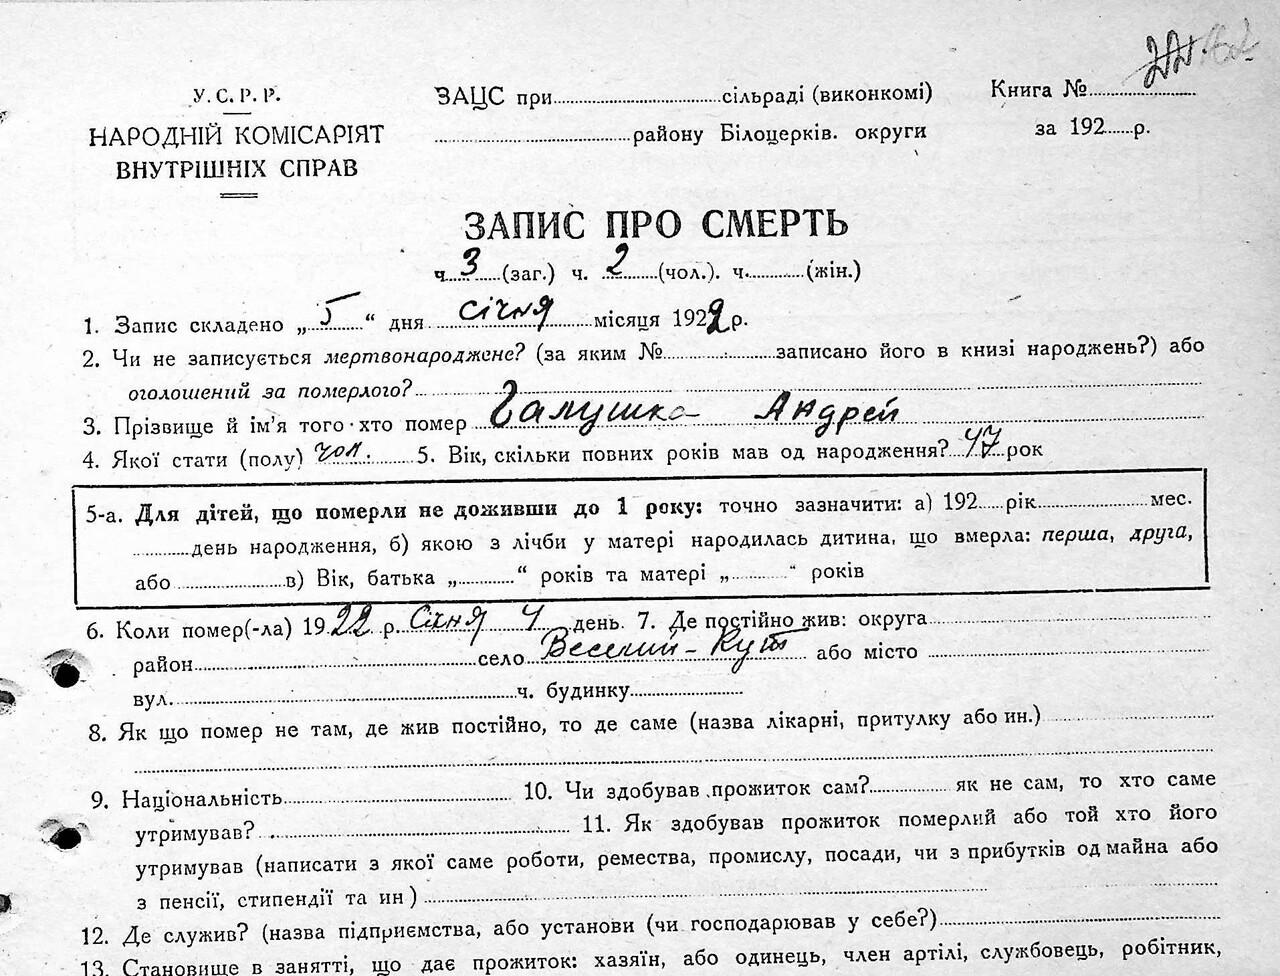 У.С.Р.Р.
НАРОДНІЙ КОМІСАРІЯТ
ВНУТРІШНІХ СПРАВ
ЗАЦС при..........сільраді (виконкомі)
..........району Білоцерків. округи
Книга №..........
за 192......р.
ЗАПИС ПРО СМЕРТЬ
ч. 3 (заг.) ч. 2 (чол.). ч..........(жін.)
1. Запис складено „ 5 “ дня січня місяця 1922 р.
2. Чи не записується мертвонароджене? (за яким №..........записано його в книзі народжень?) або
оголошений за померлого?..........
3. Прізвище й ім'я того хто помер Галушка Андрей
4. Якої стати (полу) чол. 5. Вік, скільки повних років мав од народження? 47 рок
5-а. Для дітей, що померли не доживши до 1 року: точно зазначити: а) 192......рік..........мес.
..........день народження, б) якою з лічби у матері народилась дитина, що вмерла: перша, друга,
або..........в) Вік, батька „..........“ років та матері „..........“ років
6. Коли помер(-ла) 1922 р. Січня 4 день. 7. Де постійно жив: округа..........
район..........село Веселий-Кут або місто..........
вул...........ч. будинку..........
8. Як що помер не там, де жив постійно, то де саме (назва лікарні, притулку або ин.)..........
9. Національність..........10. Чи здобував прожиток сам?..........як не сам, то хто саме
утримував?..........11. Як здобував прожиток померлий або той хто його
утримував (написати з якої саме роботи, ремества, промислу, посади, чи з прибутків од майна або
з пенсії, стипендії та ин)..........
12. Де служив? (назва підприємства, або установи (чи господарював у себе?)..........
13. Становище в занятті, що дає прожиток: хазяїн, або одинець, член артілі, службовець, робітник,